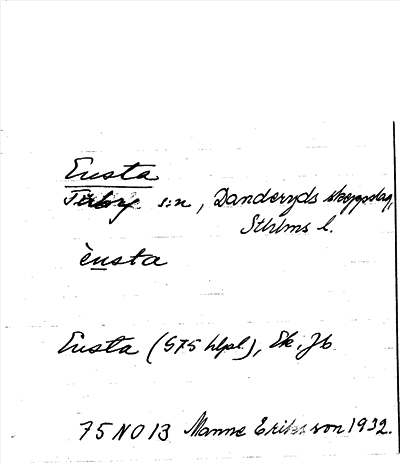 Ensta
Täby s:n, Danderyds skeppslag,
Sthlms l.
ènsta
Ensta (575 hlpl.), Ek. Jb
75 NO 13 Manne Eriksson 1932.